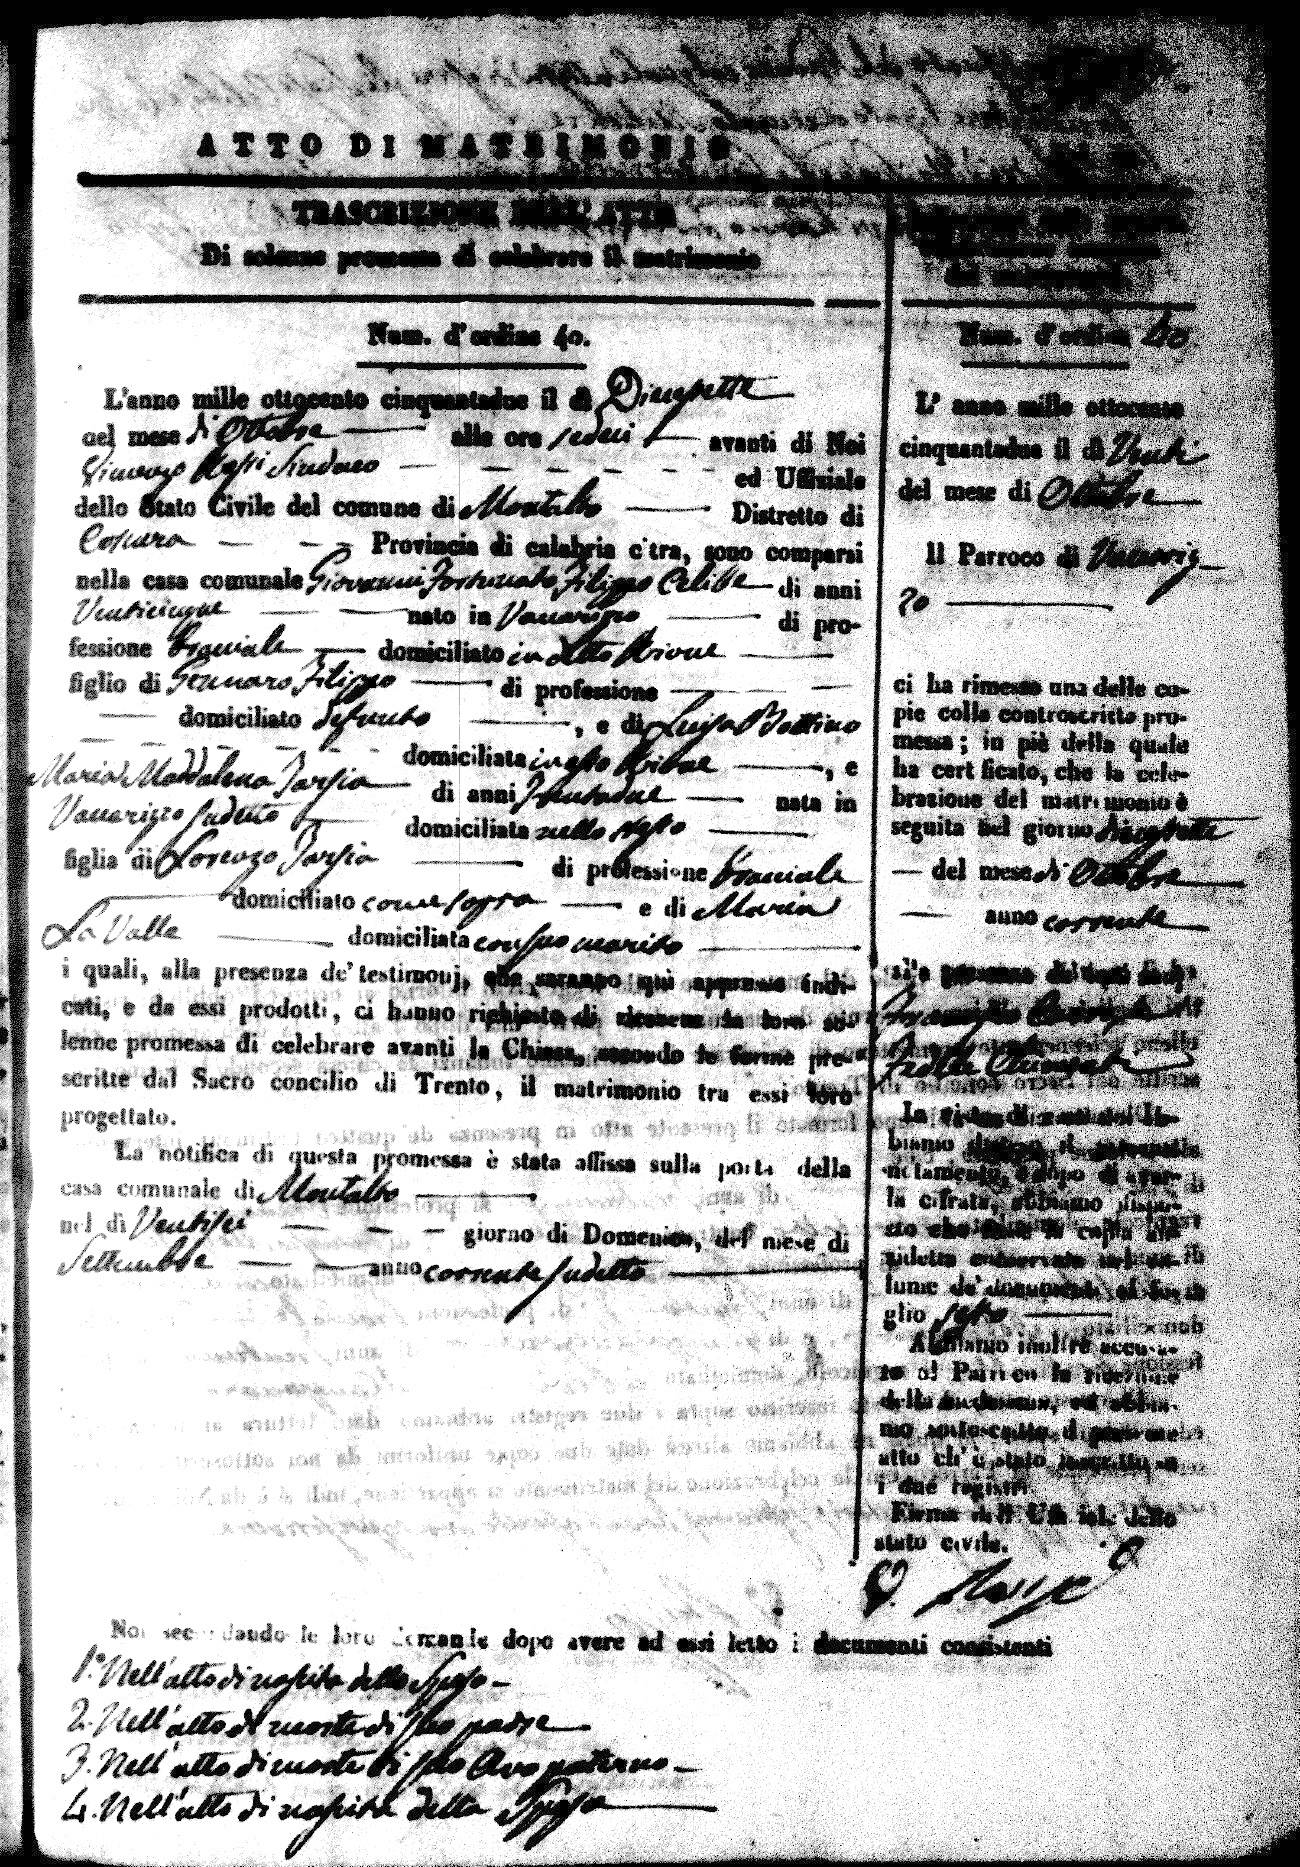 ATTO DI MATRIMONIO
TRASCRIZIONE DELL'ATTO
Di solenne promessa di celebrare il matrimonio
Num. d'ordine 40.
L'anno mille ottocento cinquantadue il dì Diciasette
nel mese di Ottobre alle ore sedeci avanti di Noi
Vincenzo Rossi Sindaco ed Uffiziale
dello Stato Civile del comune di Montalto Distretto di
Cosenza Provincia di calabria citra, sono comparsi
nella casa comunale Giovanni Fortunato Filippo Celibe di anni
Venticinque nato in Vaccarizzo di pro-
fessione Bracciale domiciliato in detto Rione
figlio di Gennaro Filippo di professione
domiciliato defunto, e di Luisa Bottino
domiciliata in esso Rione, e
Maria Maddalena Jorgia di anni Trentadue nata in
Vaccarizzo sudetto domiciliata nello stesso
figlia di Lorenzo Jorgia di professione Bracciale
domiciliato come sopra e di Maria
La Valle domiciliata con suo marito
i quali, alla presenza de' testimonj, che saranno quì appresso indi-
cati, e da essi prodotti, ci hanno richiesto di ricevere la loro so-
lenne promessa di celebrare avanti la Chiesa, secondo le forme pre-
scritte dal Sacro concilio di Trento, il matrimonio tra essi loro
progettato.
La notifica di questa promessa è stata affissa sulla porta della
casa comunale di Montalto
nel dì Ventisei giorno di Domenica, del mese di
Settembre anno corrente sudetto
Noi secondando le loro domande dopo avere ad essi letto i documenti consistenti
1.° Nell'atto di nascita dello Sposo
2. Nell'atto di morte di suo padre
3. Nell'atto di morte di suo Avo paterno
4. Nell'atto di nascita della Sposa
del matrimonio.
Num. d'ordine 40
L' anno mille ottocento
cinquantadue il dì Venti
del mese di Ottobre
Il Parroco di Vaccariz
zo
ci ha rimesso una delle co-
pie colla controscritta pro-
messa; in piè della quale
ha certificato, che la cele-
brazione del matrimonio è
seguita nel giorno diciasette
del mese di Ottobre
anno corrente
alla presenza de' testimonj
In vista di essa noi ab-
biamo disteso il presente
notamento, e dopo di aver-
la cifrata, abbiamo dispo-
sto che fosse la copia an-
zidetta conservata nel vo-
lume de' documenti al fo-
glio sesto
Abbiamo inoltre accusa-
to al Parroco la ricezione
della medesima, ed abbia-
mo sottoscritto il presente
atto ch'è stato inscritto su
i due registri.
Firma dell' Uffizial. dello
stato civile.
V. Rossi